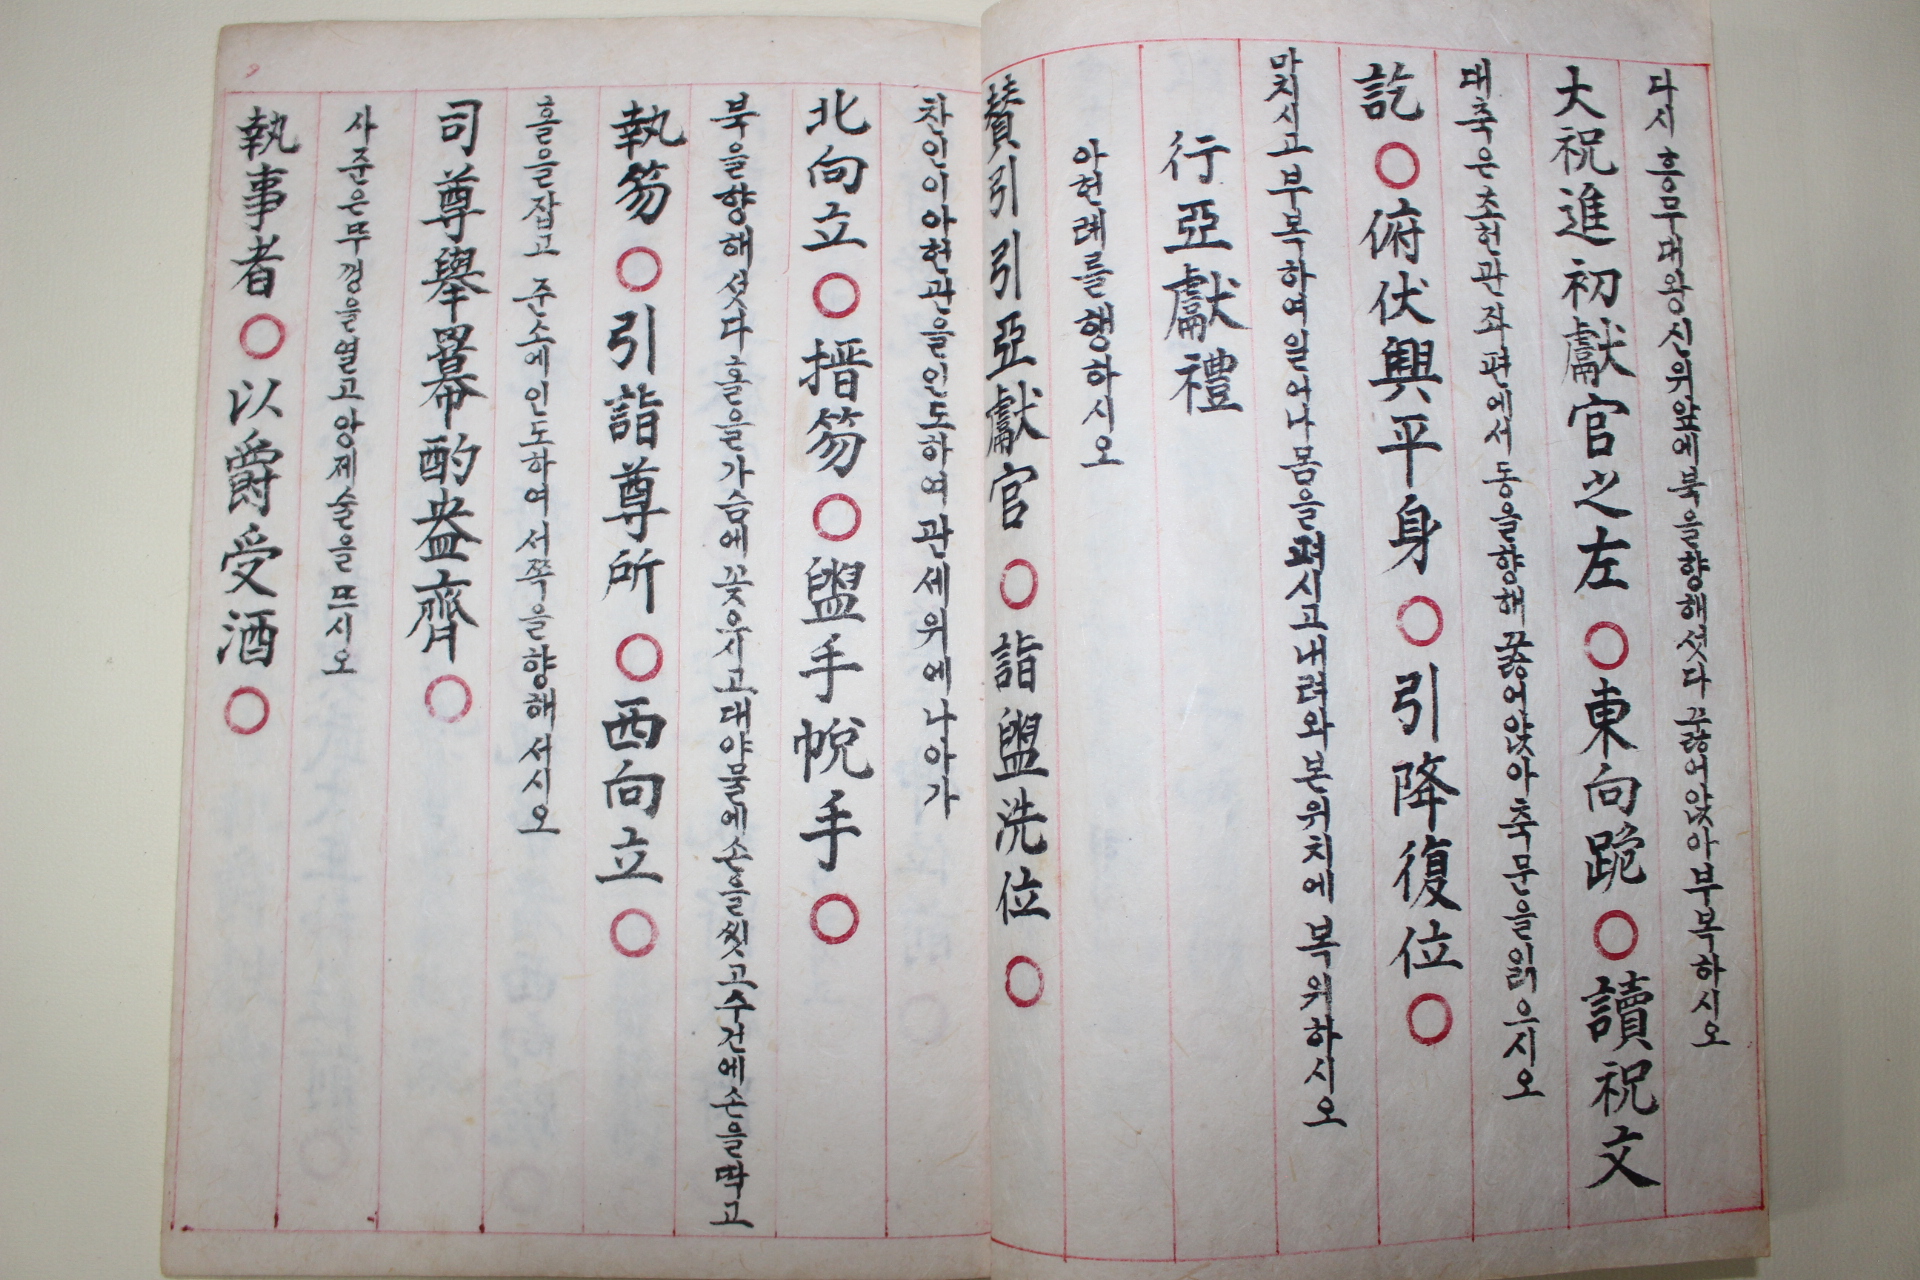 다시 흥무대왕신위앞에북을향해섯다 꿇어앉아부복하시오
大祝進初獻官之左○東向跪○讀祝文
대축은초헌관좌편에서 동을향해 꿇어앉아 축문을읽으시오
訖○俯伏興平身○引降復位○
마치시고부복하여일어나 몸을펴시고내려와 본위치에 복위하시오
行亞獻禮
아헌례를행하시오
贊引引亞獻官○詣盥洗位○
찬인이아헌관을인도하여 관세위에나아가
北向立○搢笏○盥手帨手○
북을향해섯다 홀을가슴에 꽂으시고대야물에손을씻고수건에손을딱고
執笏○引詣尊所○西向立○
홀을잡고 준소에인도하여서쪽을향해서시오
司尊擧冪酌盎齊○
사준은무껑을열고앙제술을뜨시오
執事者○以爵受酒○
9